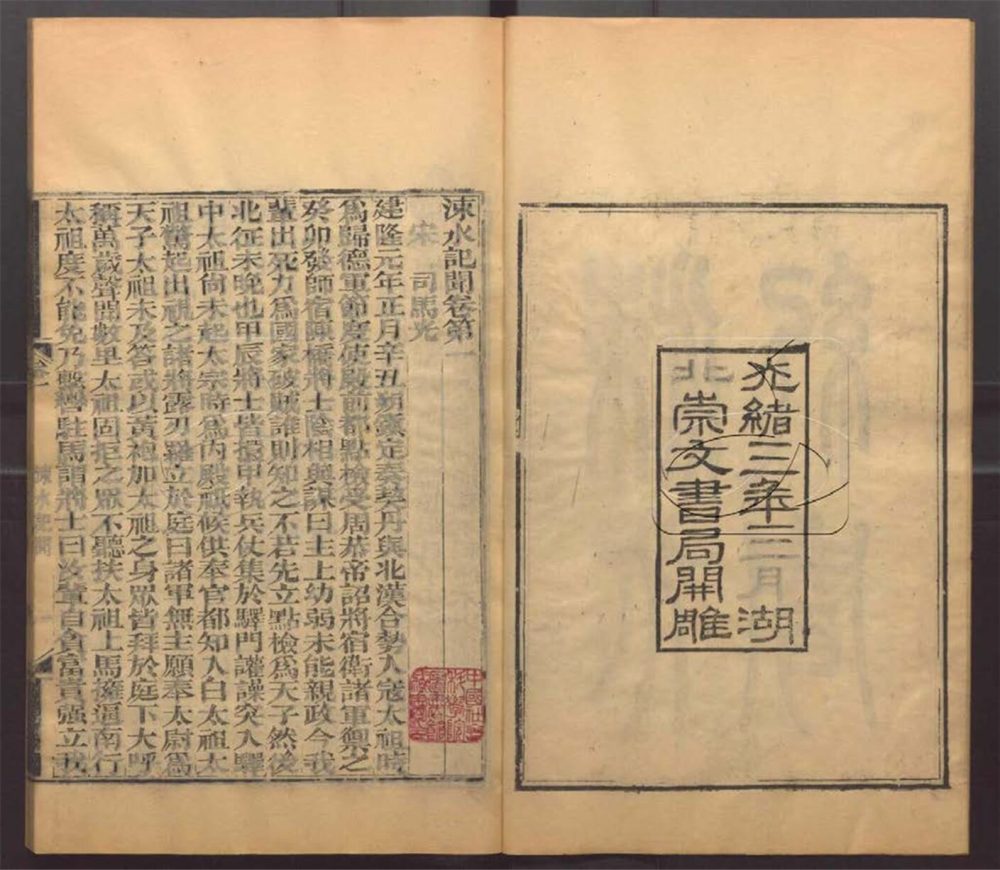 光緒三年三月湖
北崇文書局開雕
涑水記聞卷第一
宋 司馬光
建隆元年正月辛丑朔鎮定奏契丹與北漢合勢入寇太祖時
爲歸德軍節度使殿前都點檢受周恭帝詔將宿衛諸軍禦之
癸卯發師宿陳橋將士陰相與謀曰主上幼弱未能親政今我
輩出死力爲國家破賊誰則知之不若先立點檢爲天子然後
北征未晚也甲辰將士皆擐甲執兵仗集於驛門讙譟突入驛
中太祖尚未起太宗時爲内殿祗候供奉官都知入白太祖太
祖驚起出視之諸將露刃羅立於庭曰諸軍無主願奉太尉爲
天子太祖未及答或以黃袍加太祖之身眾皆拜於庭下大呼
稱萬歲聲聞數里太祖固拒之眾不聽扶太祖上馬擁逼南行
太祖度不能免乃繫轡駐馬謂將士曰汝輩自貪富貴強立我
卷一
涑水記聞
一